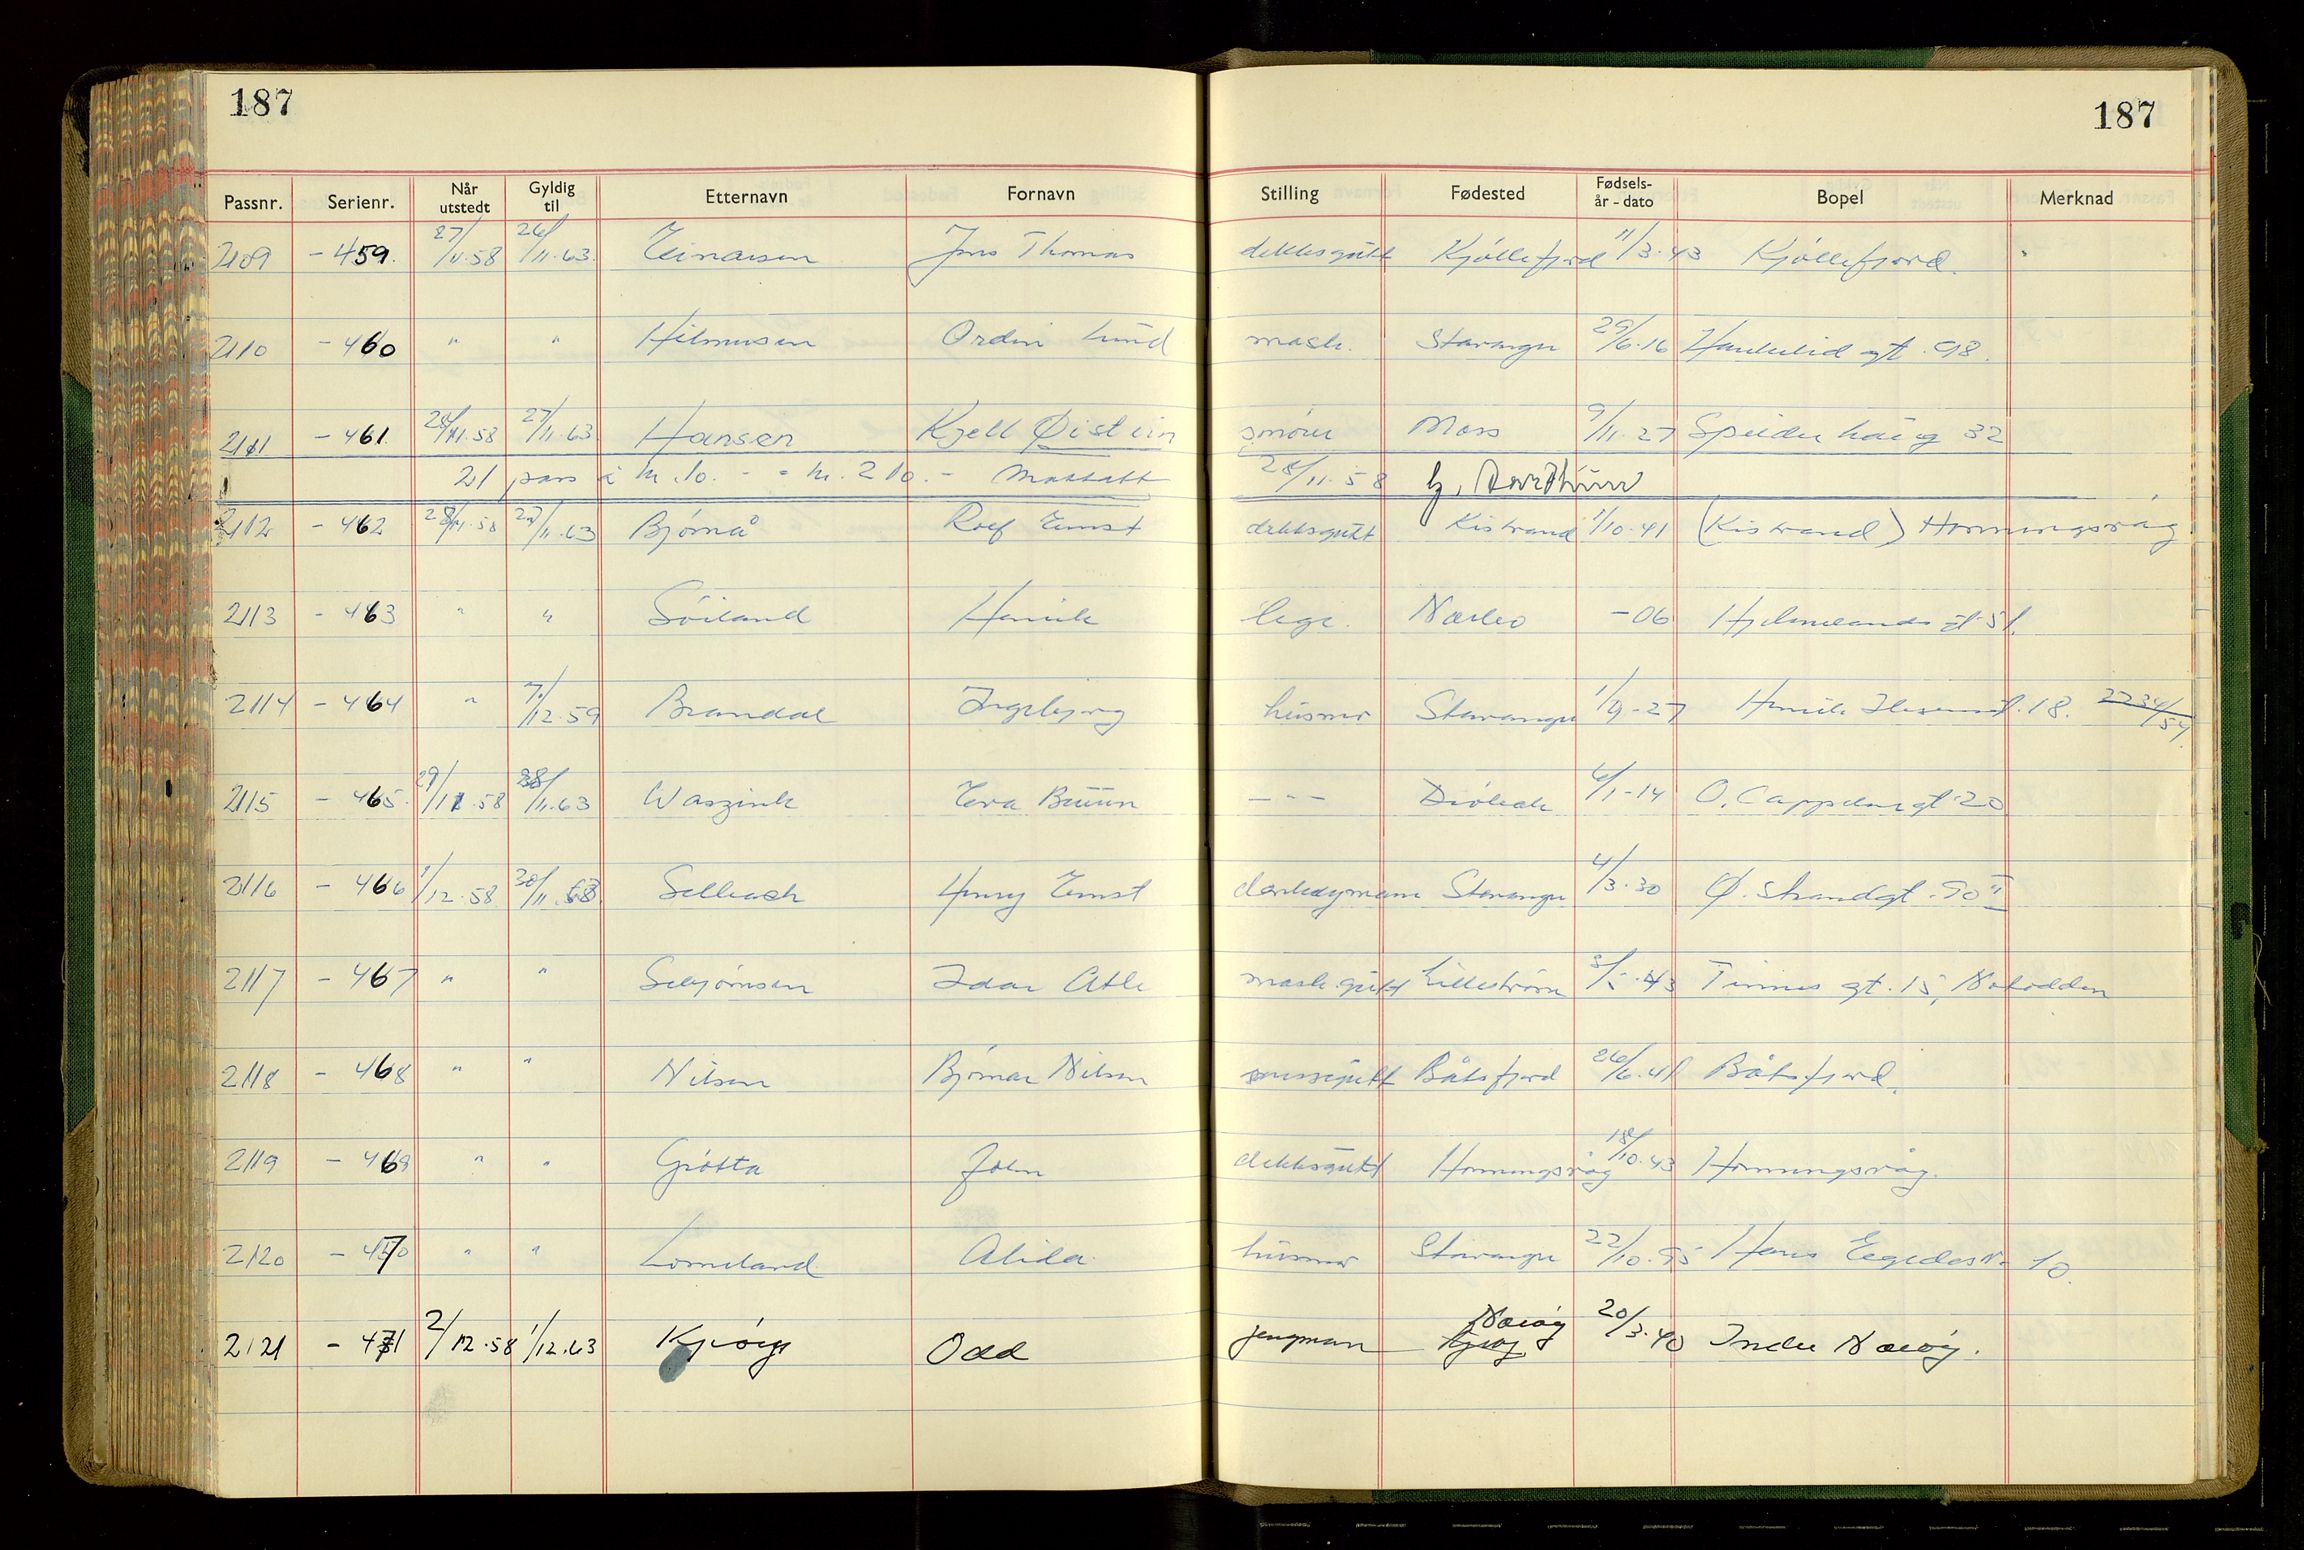 187 187
Passnr. Serienr. Når utstedt Gyldig til Etternavn Fornavn Stilling Fødested Fødsels-år - dato Bopel Merknad
2109 - 459. 27/11.58 26/11.63. Einarsen Jens Thomas dekksgutt Kjøllefjord 11/3.43 Kjøllefjord.
2110 - 460 " " Hilmersen Ordin Lund mask. Stavanger 29/6.16 Haukelid gt. 98.
2111 - 461 28/11.58 27/11.63 Hansen Kjell Øistein smører Moss 9/11.27 Speiderhaug 32
21 pass à kr. 10. - = kr. 210. - Mottatt 28/11.58
2112 - 462 28/11.58 27/11.63 Bjørnå Rolf Ernst dekksgutt Kistrand 1/10.41 (Kistrand) Honningsvåg
2113 - 463 " " Söiland Henrik lege. Nærbø -06 Hjelmelands gt. 51.
2114 - 464 " 7/12.59 Brandal Ingebjørg husmor Stavanger 1/9-27 Henrik Ibsensgt. 18. 2234/54.
2115 - 465. 29/11.58 28/11.63 Waszink Eva Bruun - " - Drøbak 6/1-14 O. Cappelens gt 20
2116 - 466 1/12.58 30/11.63 Selbach Henry Ernst Stavanger 4/3.30 Ø. Strandgt. 90 II
2117 - 467 " " Sebjørnsen Idar Atle mask.gutt Lillestrøm 3/5.43 Tinnes gt. 15, Notodden
2118 - 468 " " Nilsen Bjørnar Nilsen Båtsfjord 26/6.41 Båtsfjord.
2119 - 469 " " Grøtta John dekksgutt Honningsvåg 18/10.43 Honningsvåg.
2120 - 470 " " Lomeland Alida husmor Stavanger 22/10.95 Hans Egedesv. 10.
2121 - 471 2/12.58 1/12.63 Odd jungman Nærøy 20/3.40 Indre Nærøy.